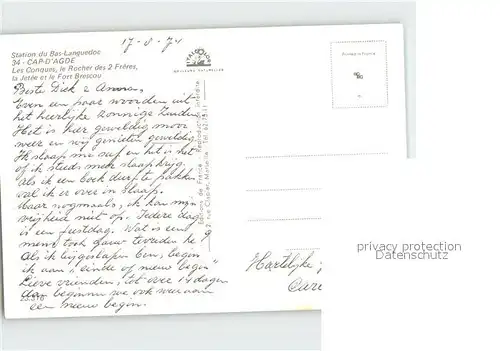 17-8-74
Station du Bas-Languedoc
34 - CAP-D'AGDE
Les Conques, le Rocher des 2 Frères,
la Jetée et le Fort Brescou
Printed in France
Beste Dick & Anna,
Even een paar woorden uit
het heerlijke zonnige Zuiden
Het is hier geweldig mooi
weer en wij genieten geweldig
Ik slaap me suf en het is net
of ik steeds meer slaap krijg.
Als ik een boek durf te pakken
val ik er over in slaap.
Maar nogmaals, ik kan mijn
vrijheid niet op. Iedere dag
is een feestdag. Wat is een
mens toch gauw tevreden hé?
Als ik uitgeslapen ben, begin
ik aan "einde of nieuw begin"
Lieve vrienden, tot over 14 dagen
dan beginnen we ook weer aan
een nieuw begin.
Hartelijke
Editions de France - Reproduction interdite
rue Crillon, Marseille
privacy protection
Datenschutz